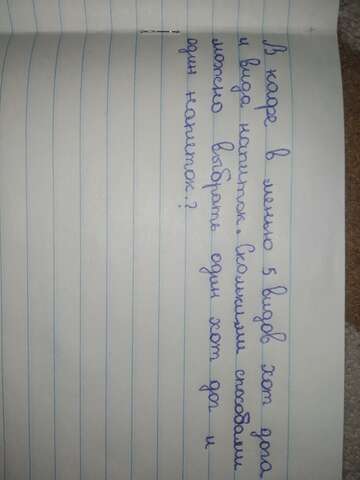 В кафе в менью 5 видов хот дога
и вида напиток. Сколькими способами
можно выбрать один хот дог и
один напиток?